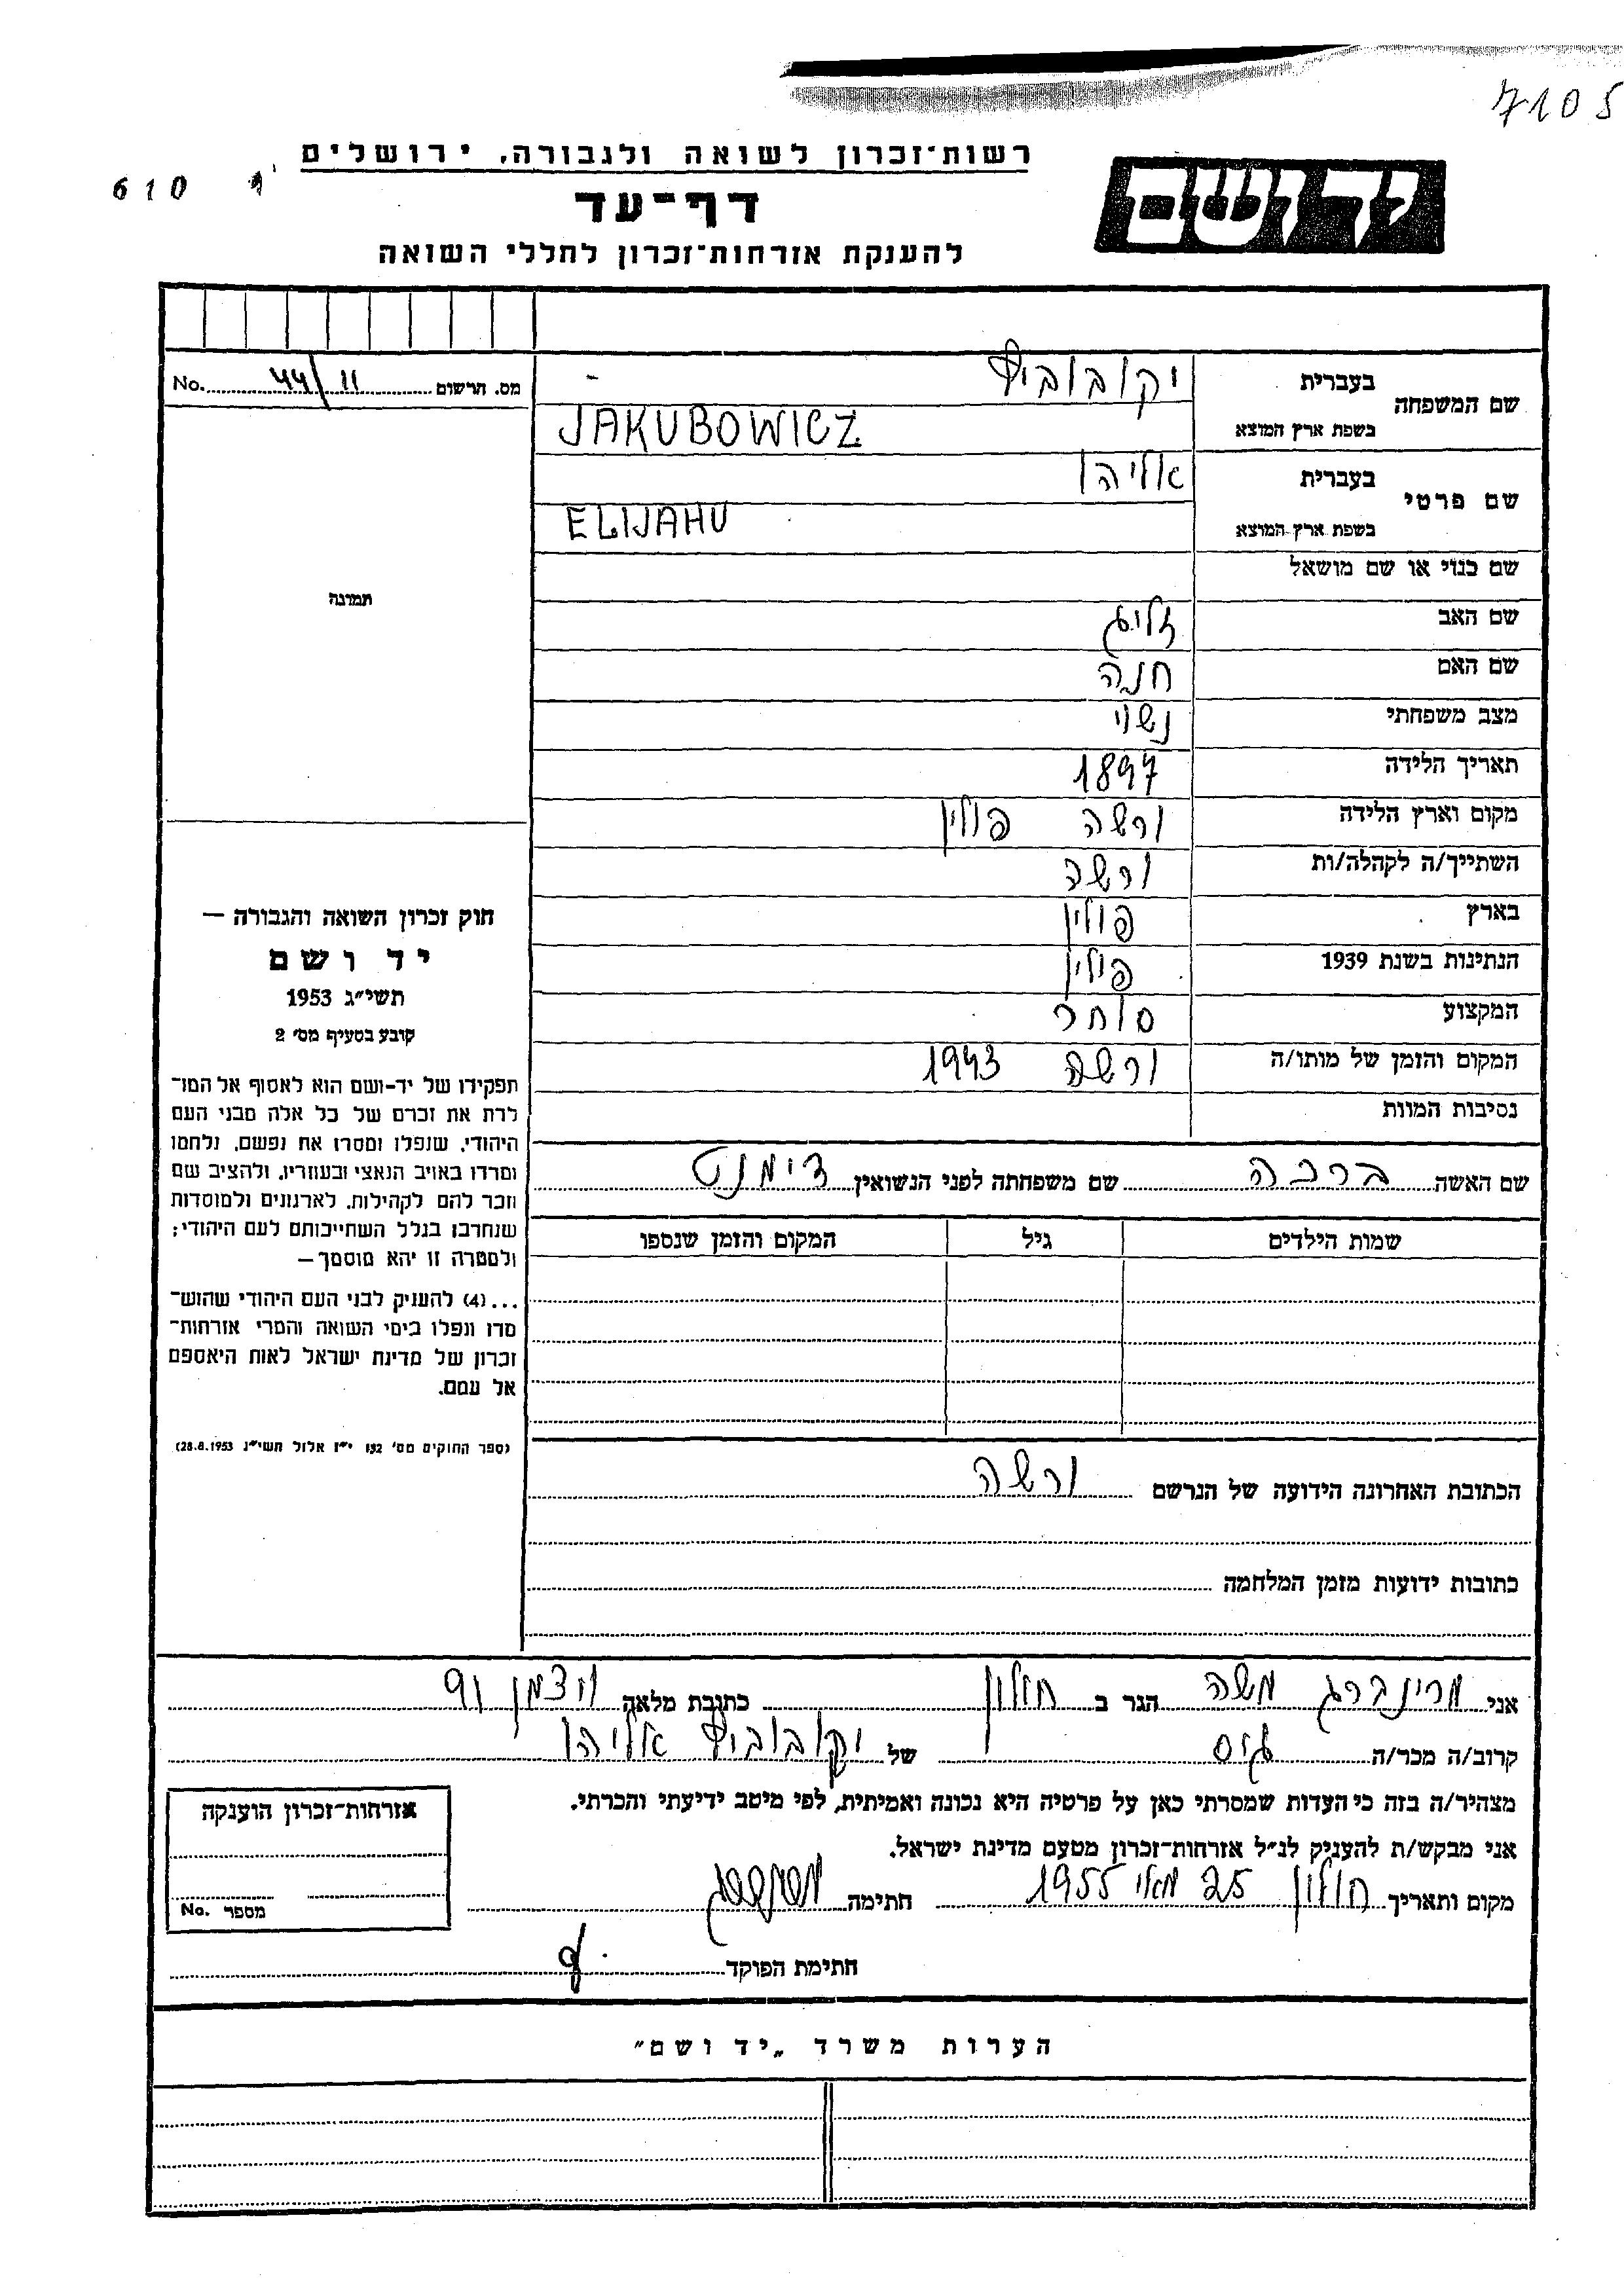 7105
רשות־זכרון לשואה ולגבורה, ירושלים
610
דף־עד
יד ושם
להענקת אזרחות־זכרון לחללי השואה
שם המשפחה
בעברית יקובוביץ
בשפת ארץ המוצא JAKUBOWICZ
מס. הרשום 44/11 No.
שם פרטי
בעברית אליהו
בשפת ארץ המוצא ELIJAHU
שם כנוי או שם מושאל
תמונה
שם האב זליג
שם האם חנה
מצב משפחתי נשוי
תאריך הלידה 1897
מקום וארץ הלידה ורשה פולין
השתייך/ה לקהלה/ות ורשה
בארץ פולין
הנתינות בשנת 1939 פולין
המקצוע סוחר
המקום והזמן של מותו/ה ורשה 1943
נסיבות המוות
שם האשה ברכה שם משפחתה לפני הנשואין דימנט
שמות הילדים גיל המקום והזמן שנספו
הכתובת האחרונה הידועה של הנרשם ורשה
כתובות ידועות מזמן המלחמה
חוק זכרון השואה והגבורה —
יד ושם
תשי״ג 1953
קובע בסעיף מס׳ 2
תפקידו של יד-ושם הוא לאסוף אל המו־
לדת את זכרם של כל אלה מבני העם
היהודי, שנפלו ומסרו את נפשם, נלחמו
ומרדו באויב הנאצי ובעוזריו, ולהציב שם
וזכר להם לקהילות, לארגונים ולמוסדות
שנחרבו בגלל השתייכותם לעם היהודי;
ולמטרה זו יהא מוסמך—
...(4) להעניק לבני העם היהודי שהוש־
מדו ונפלו בימי השואה והמרי אזרחות־
זכרון של מדינת ישראל לאות היאספם
אל עמם.
(ספר החוקים מס׳ 132 י״ז אלול תשי״ג 28.8.1953)
אני מרינברג משה הגר ב חולון כתובת מלאה וצמן 91
קרוב/ה מכר/ה גיס של יקובוביץ אליהו
מצהיר/ה בזה כי העדות שמסרתי כאן על פרטיה היא נכונה ואמיתית, לפי מיטב ידיעתי והכרתי.
אני מבקש/ת להעניק לנ״ל אזרחות־זכרון מטעם מדינת ישראל.
מקום ותאריך חולון 25 מאי 1955 חתימה
חתימת הפוקד
אזרחות־זכרון הוענקה
מספר No.
הערות משרד „יד ושם״